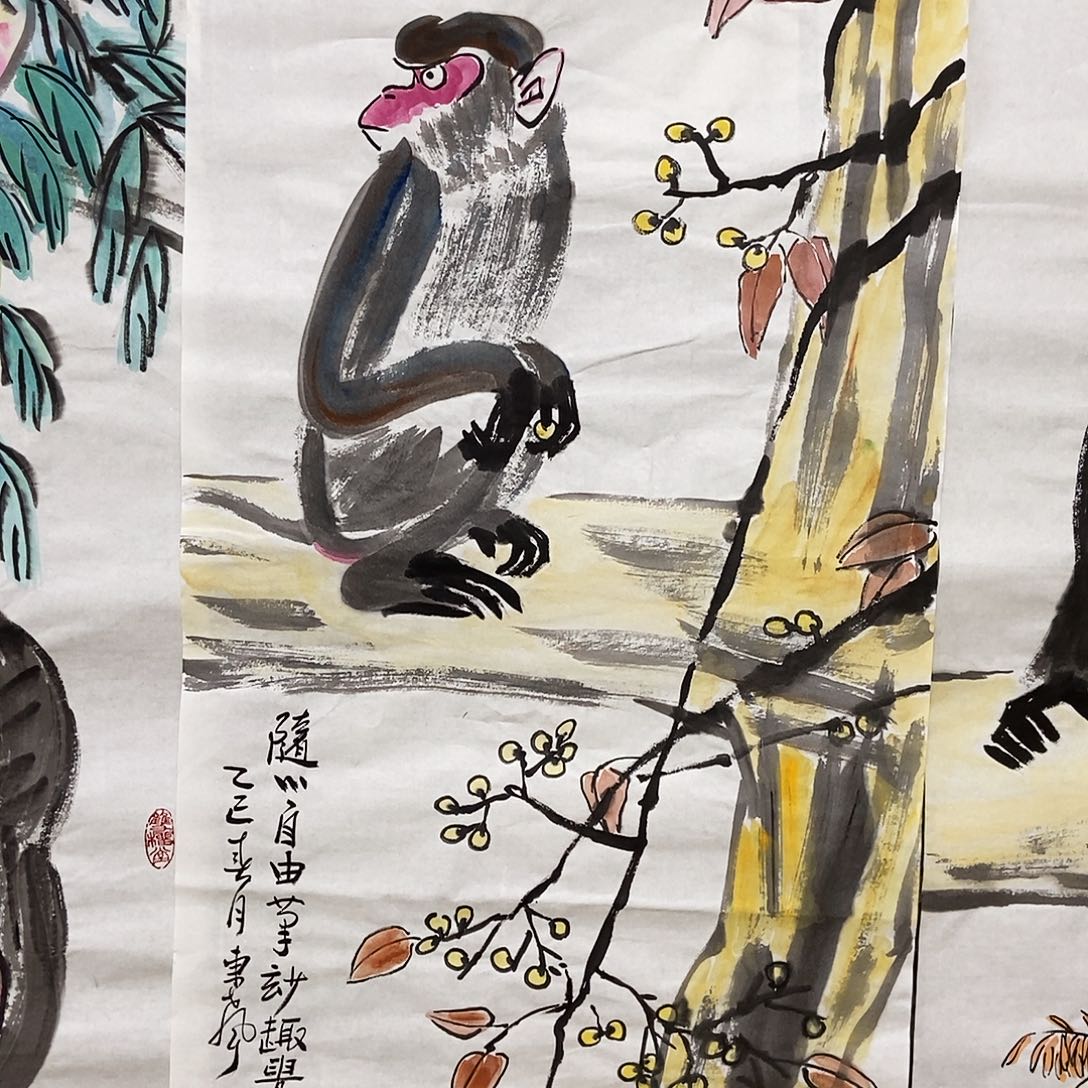 隨心自由筆妙趣
乙巳春月東風